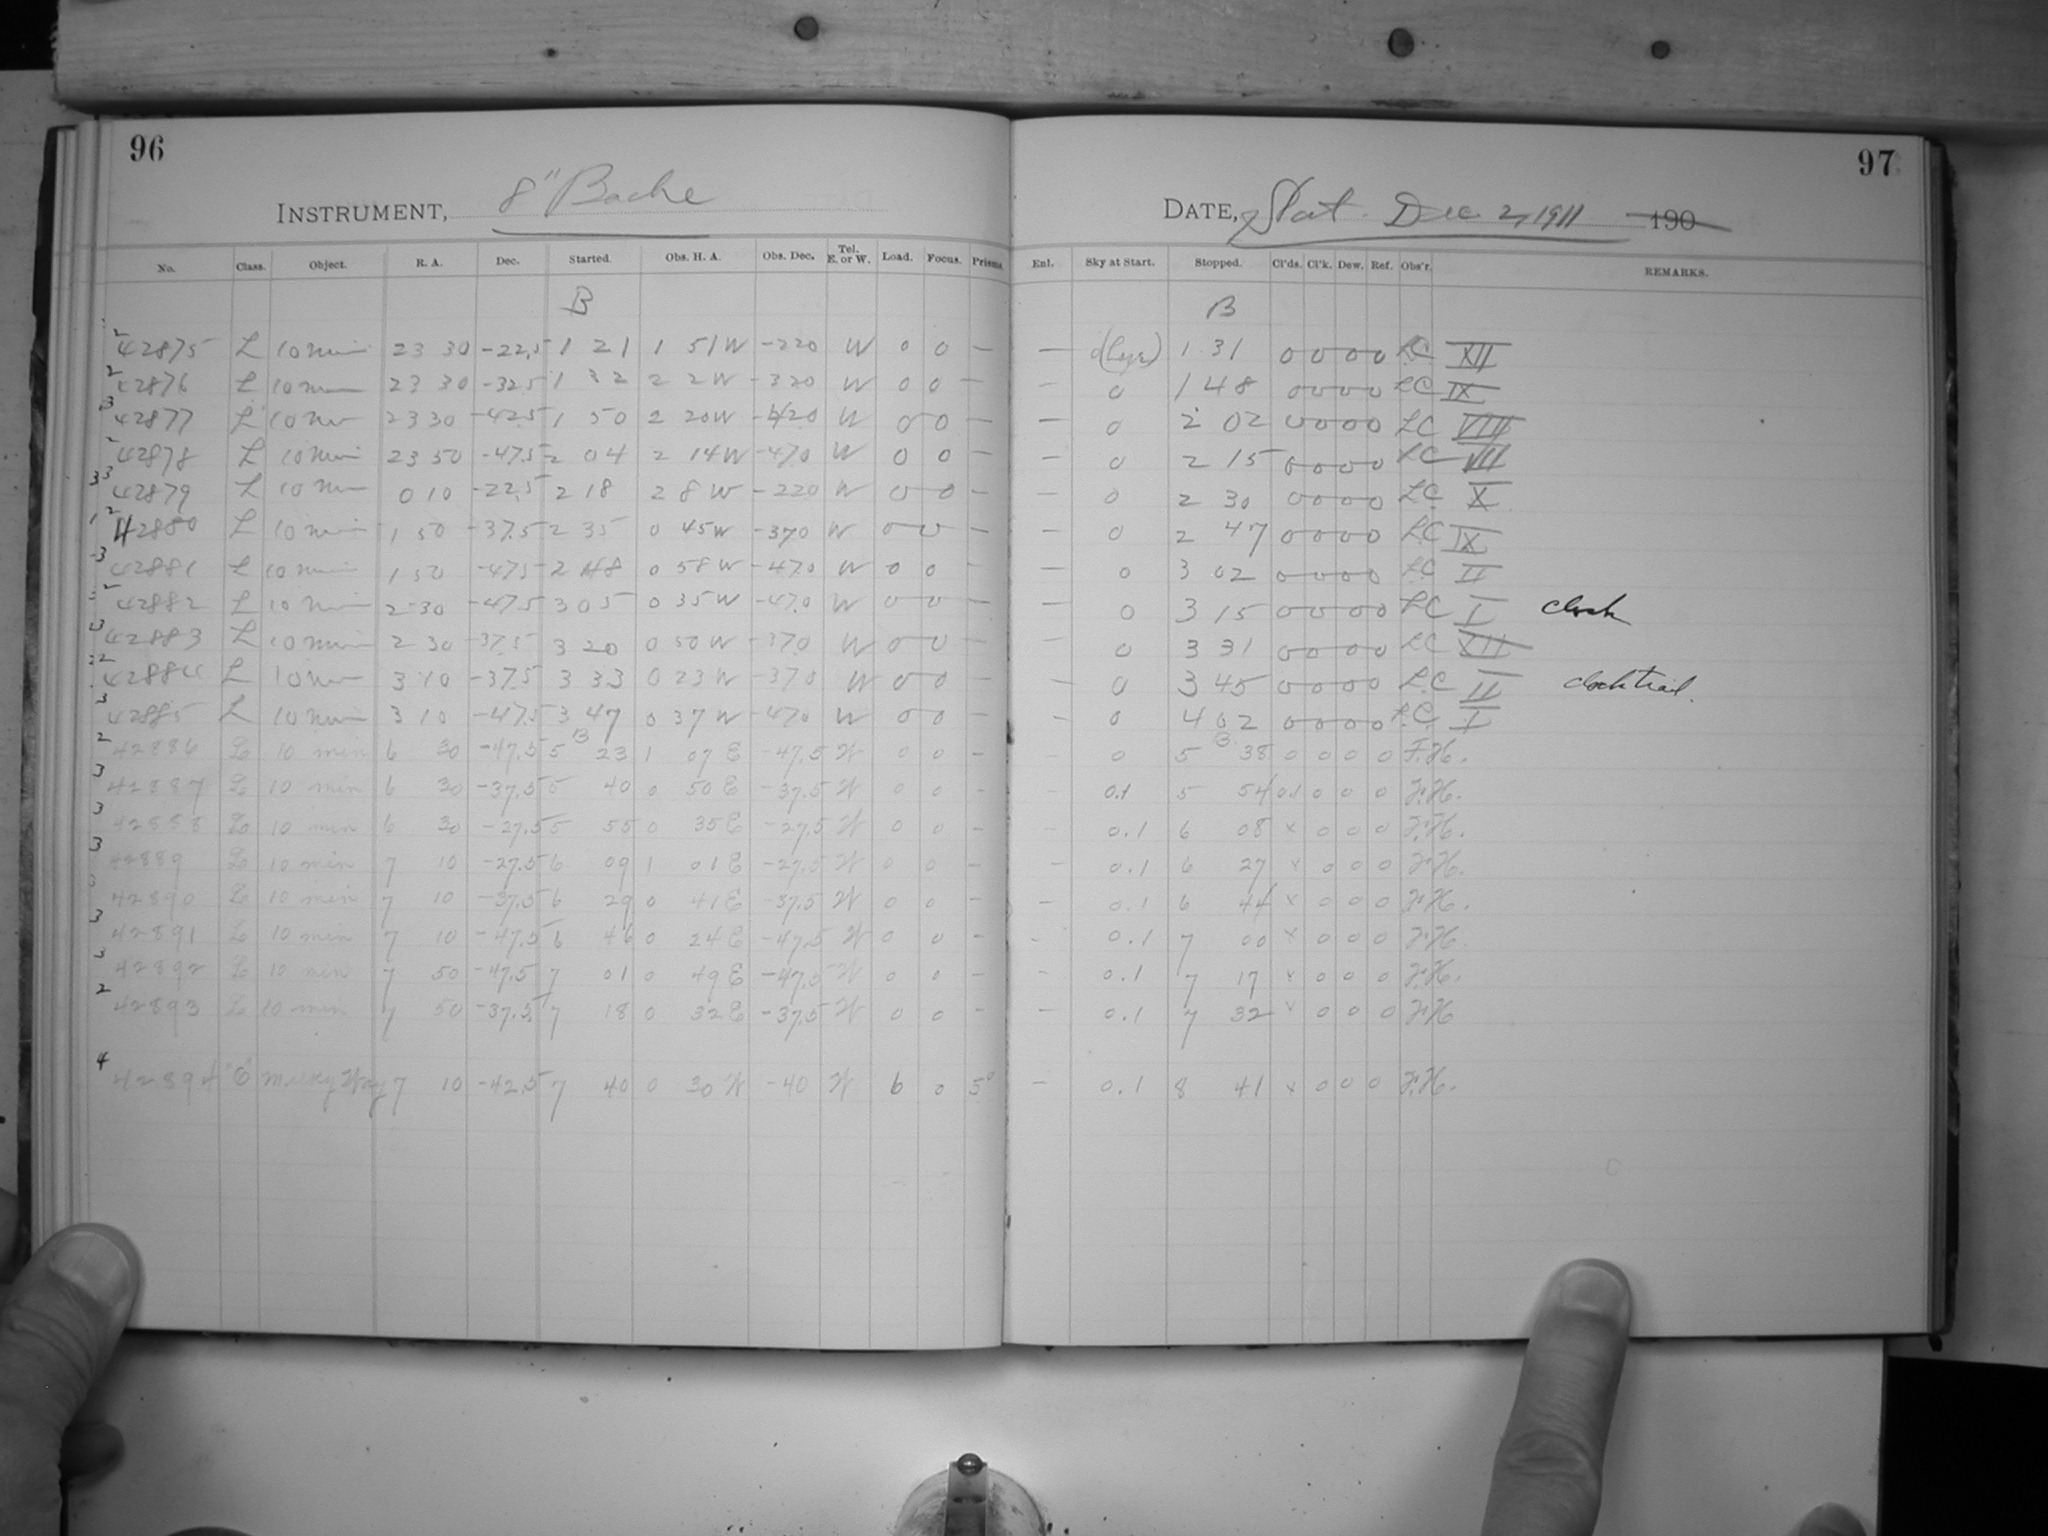 96
INSTRUMENT, 8" Bache
No. Class. Object. R. A. Dec. Started. Obs. H. A. Obs. Dec. Tel. E. or W. Load. Focus. Prisms.
B
2 42875 L 10 min 23 30 -22.5 1 21 1 51 W -220 W 0 0 —
2 42876 L 10 min 23 30 -32.5 1 32 2 2 W -320 W 0 0 —
3 42877 L 10 min 23 30 -42.5 1 50 2 20 W -420 W 0 0 —
2 42878 L 10 min 23 50 -47.5 2 04 2 14 W -470 W 0 0 —
3 42879 L 10 min 0 10 -22.5 2 18 2 8 W -220 W 0 0 —
2 42880 L 10 min 1 50 -37.5 2 35 0 45 W -370 W 0 0 —
3 42881 L 10 min 1 50 -47.5 2 48 0 58 W -470 W 0 0 —
42882 L 10 min 2 30 -47.5 3 05 0 35 W -470 W 0 0 —
3 42883 L 10 min 2 30 -37.5 3 20 0 50 W -370 W 0 0 —
2 42884 L 10 min 3 10 -37.5 3 33 0 23 W -370 W 0 0 —
3 42885 L 10 min 3 10 -47.5 3 47 0 37 W -470 W 0 0 —
B
2 42886 L 10 min 6 30 -47.5 5 23 1 07 E -47.5 W 0 0 —
3 42887 L 10 min 6 30 -37.5 5 40 0 50 E -37.5 W 0 0 —
3 42888 L 10 min 6 30 -27.5 5 55 0 35 E -27.5 W 0 0 —
3 42889 L 10 min 7 10 -27.5 6 09 1 01 E -27.5 W 0 0 —
3 42890 L 10 min 7 10 -37.5 6 29 0 41 E -37.5 W 0 0 —
3 42891 L 10 min 7 10 -47.5 6 46 0 24 E -47.5 W 0 0 —
3 42892 L 10 min 7 50 -47.5 7 01 0 49 E -47.5 W 0 0 —
2 42893 L 10 min 7 50 -37.5 7 18 0 32 E -37.5 W 0 0 —
4 42894 "O" Milky Way 7 10 -42.5 7 40 0 30 W -40 W 6 0 5°
97
DATE, Sat. Dec. 2, 1911 190
Enl. Sky at Start. Stopped. Cl'ds. Cl'k. Dew. Ref. Obs'r. REMARKS.
B
— 1 31 0 0 0 0 LC XII
— 0 1 48 0 0 0 0 LC IX
— 0 2 02 0 0 0 0 LC VIII
— 0 2 15 0 0 0 0 LC VII
— 0 2 30 0 0 0 0 LC X
— 0 2 47 0 0 0 0 LC IX
— 0 3 02 0 0 0 0 LC II
— 0 3 15 0 0 0 0 LC I clock
— 0 3 31 0 0 0 0 LC XII
— 0 3 45 0 0 0 0 LC II clock trail.
— 0 4 02 0 0 0 0 LC I
B
— 0 5 38 0 0 0 0 F.H.
— 0.1 5 54 0.1 0 0 0 F.H.
— 0.1 6 08 x 0 0 0 F.H.
— 0.1 6 27 x 0 0 0 F.H.
— 0.1 6 44 x 0 0 0 F.H.
— 0.1 7 00 x 0 0 0 F.H.
— 0.1 7 17 x 0 0 0 F.H.
— 0.1 7 32 x 0 0 0 F.H.
— 0.1 8 41 x 0 0 0 F.H.